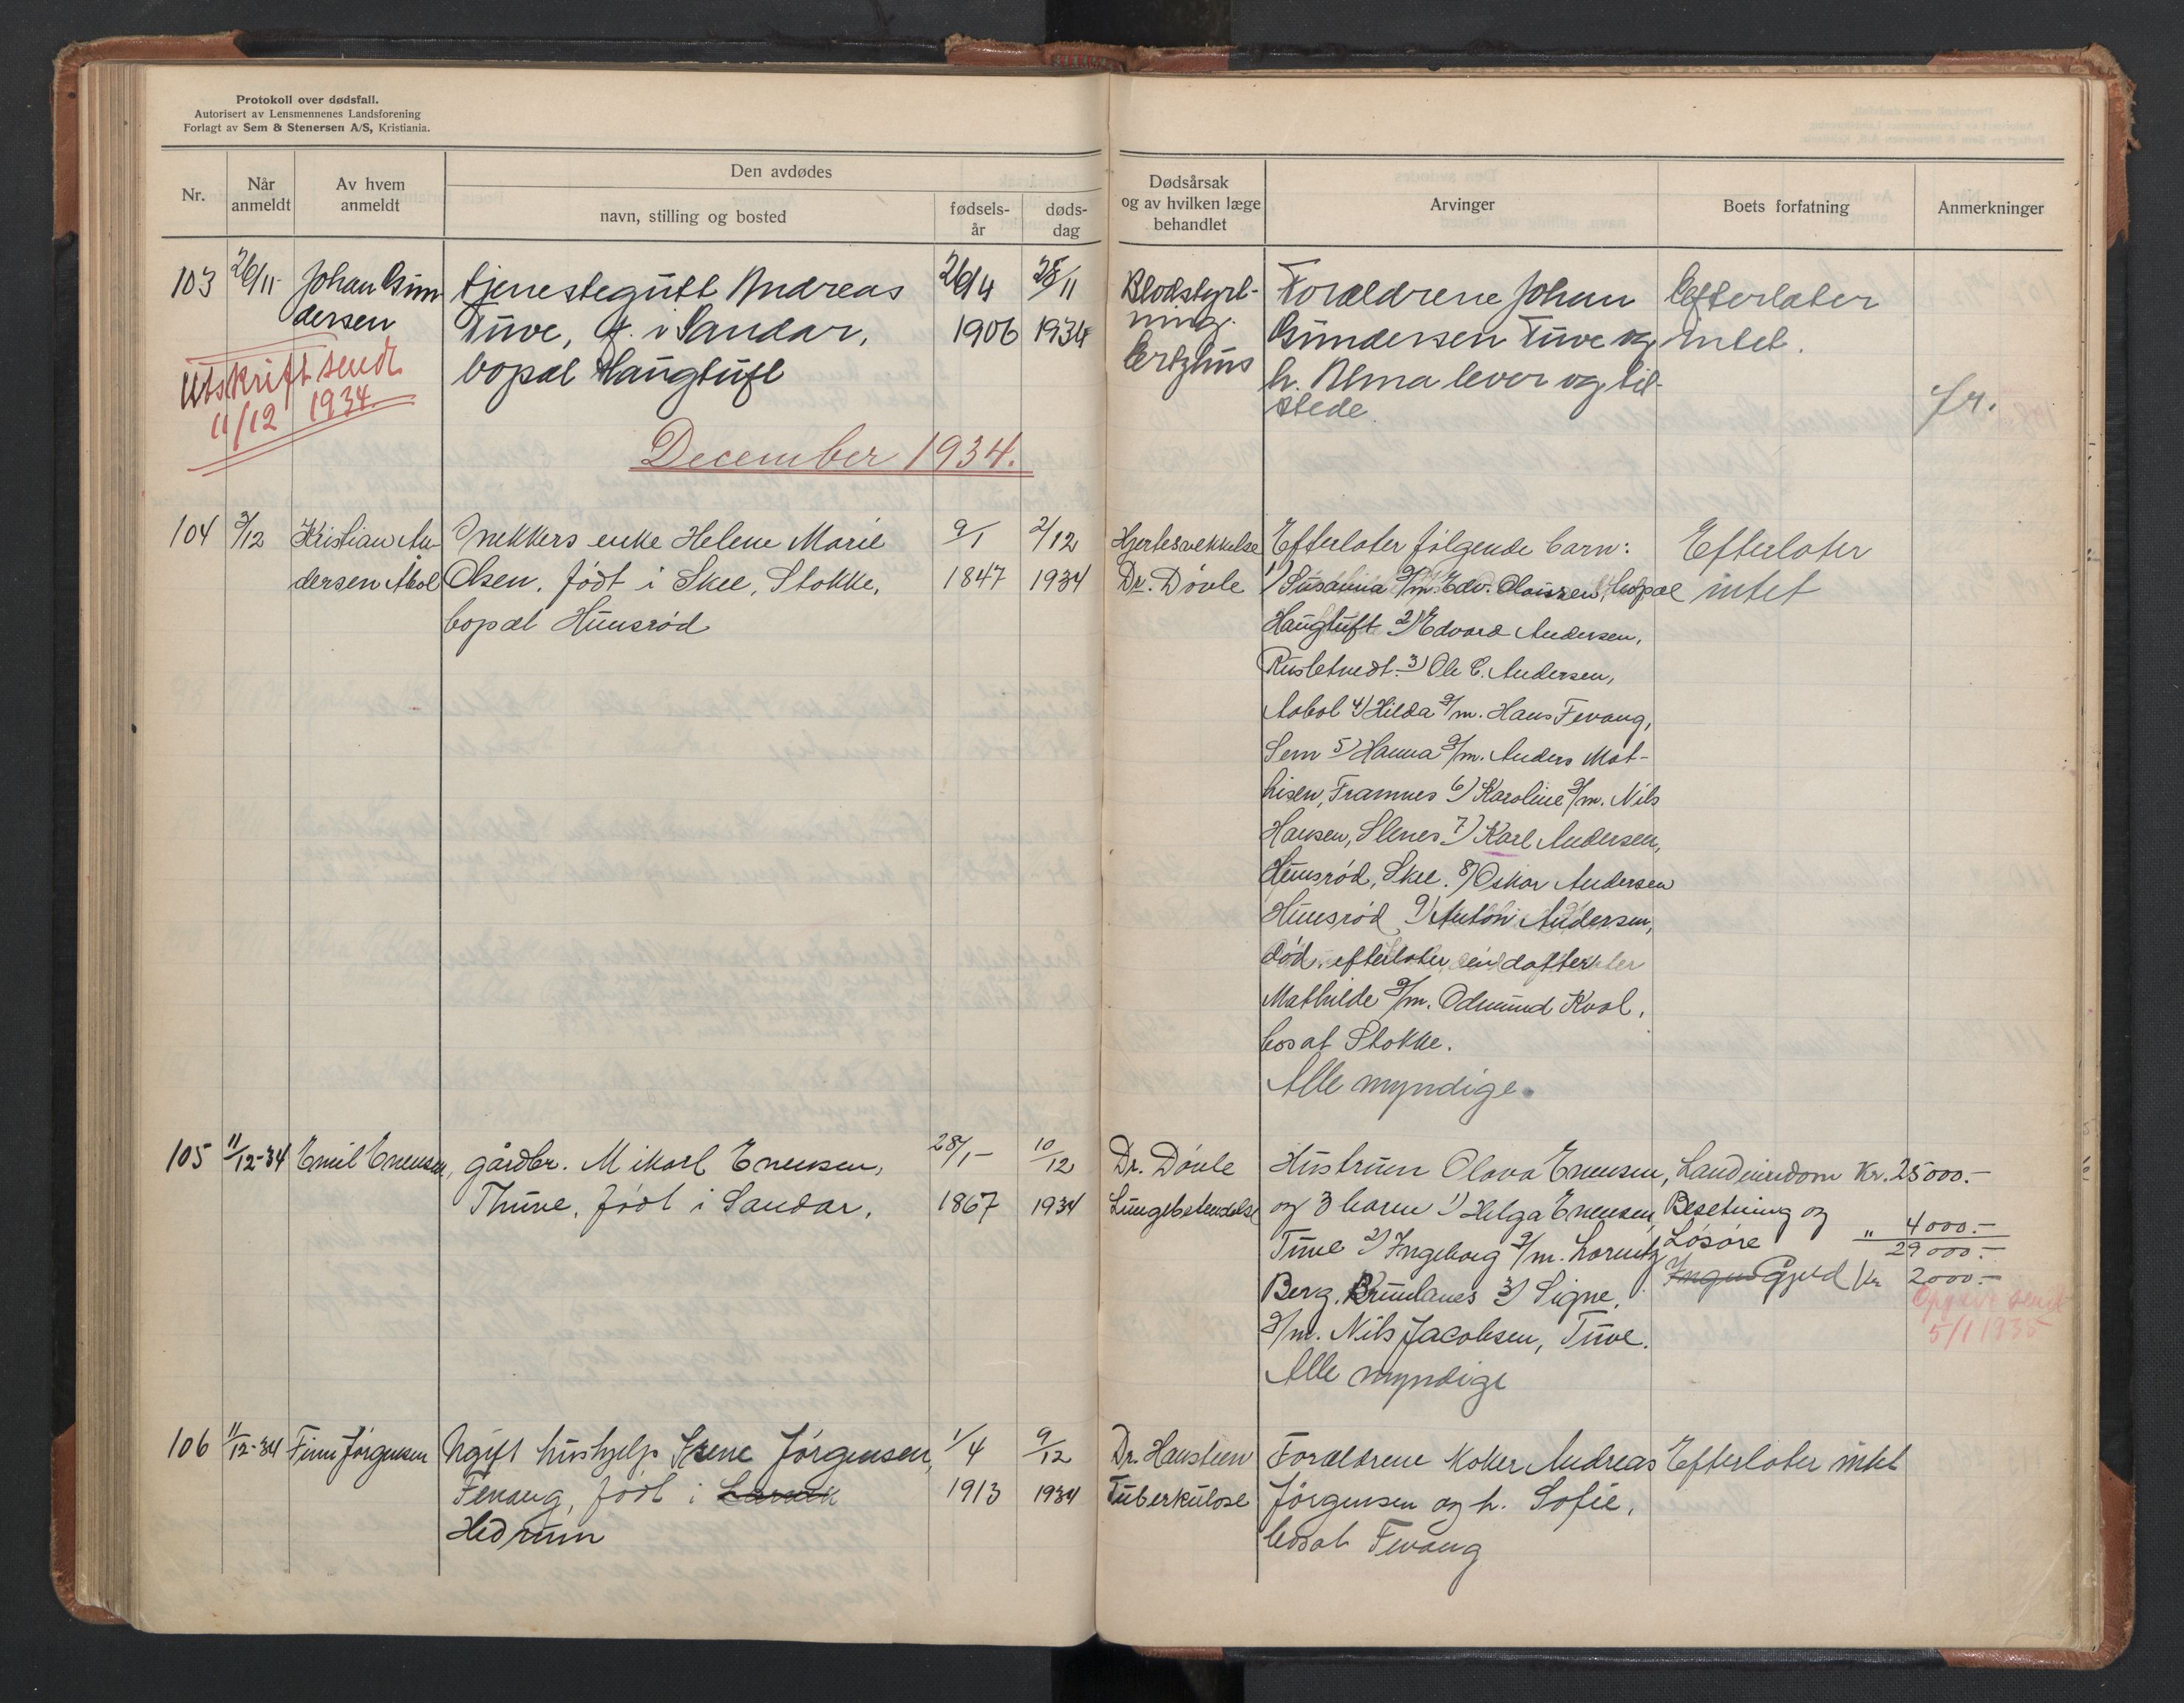 Protokoll over dødsfall.
Autorisert av Lensmennenes Landsforening
Forlagt av Sem & Stenersen A/S, Kristiania.
Nr.
Når anmeldt
Av hvem anmeldt
Den avdødes
navn, stilling og bosted
fødsels-år
døds-dag
Dødsårsak og av hvilken læge behandlet
Arvinger
Boets forfatning
Anmerkninger
103 26/11 Johan Gun tjenestegutt Andreas 26/4 25/11 Blodstyrt- Forældrene Johan Efterlater
dersen Tuve, f. i Sandar, 1906 1934 ning. Gundersen Tuve og intet.
bopæl Haugtuft h. Alma lever og til-
stede.
Utskrift sendt
11/12 1934
fr.
December 1934.
104 3/12 Kristian An- Snekkers enke Helene Marie 9/1 2/12 Hjertesvekkelse Efterlater følgende barn: Efterlater
dersen Abol Olsen, født i Skee, Stokke, 1847 1934 Dr. Dövle 1) Susanna g/m. Edv. bopæl intet
bopæl Hunsrød Haugtuft 2) Edvard Andersen,
3) Ole C. Andersen,
Aabol 4) Hilda g/m. Hans Fevang,
Sem 5) Hanna g/m. Anders Mat-
hisen, Framnes 6) Karoline g/m. Nils
Hansen, 7) Karl Andersen,
Hunsrød, Skee. 8) Oskar Andersen
Hunsrød 9) Anton Andersen,
død, efterlater en datter
Mathilde g/m. Odmund Kval,
bosat Stokke.
Alle myndige.
105 11/12-34 Emil Enensen, gårdbr. Mikael Enensen, 28/1- 10/12 Dr. Dövle Hustrum Olava Enensen, Landeiendom Kr. 25000.-
Thuve, født i Sandar, 1867 1934 Lungebetendelse og 3 barn 1) Helga Enensen, Besetning og
Tuve 2) Ingeborg g/m. Lorentz Løsøre " 4000.-
29000.-
Berg, Brunlanes 3) Signe, Ingen Gjeld Kr 2000.-
g/m. Nils Jacobsen, Tuve.
Alle myndige
Opgave sendt
5/1 1935
106 11/12-34 Finn Jørgensen Ugift hushjelp Irene Jørgensen, 1/4 9/12 Dr. Hansteen Forældrene Koker Andreas Efterlater intet
Fevang, født i Larvik 1913 1934 Tuberkulose Jørgensen og h. Sofie,
Hedrum bosat Fevang